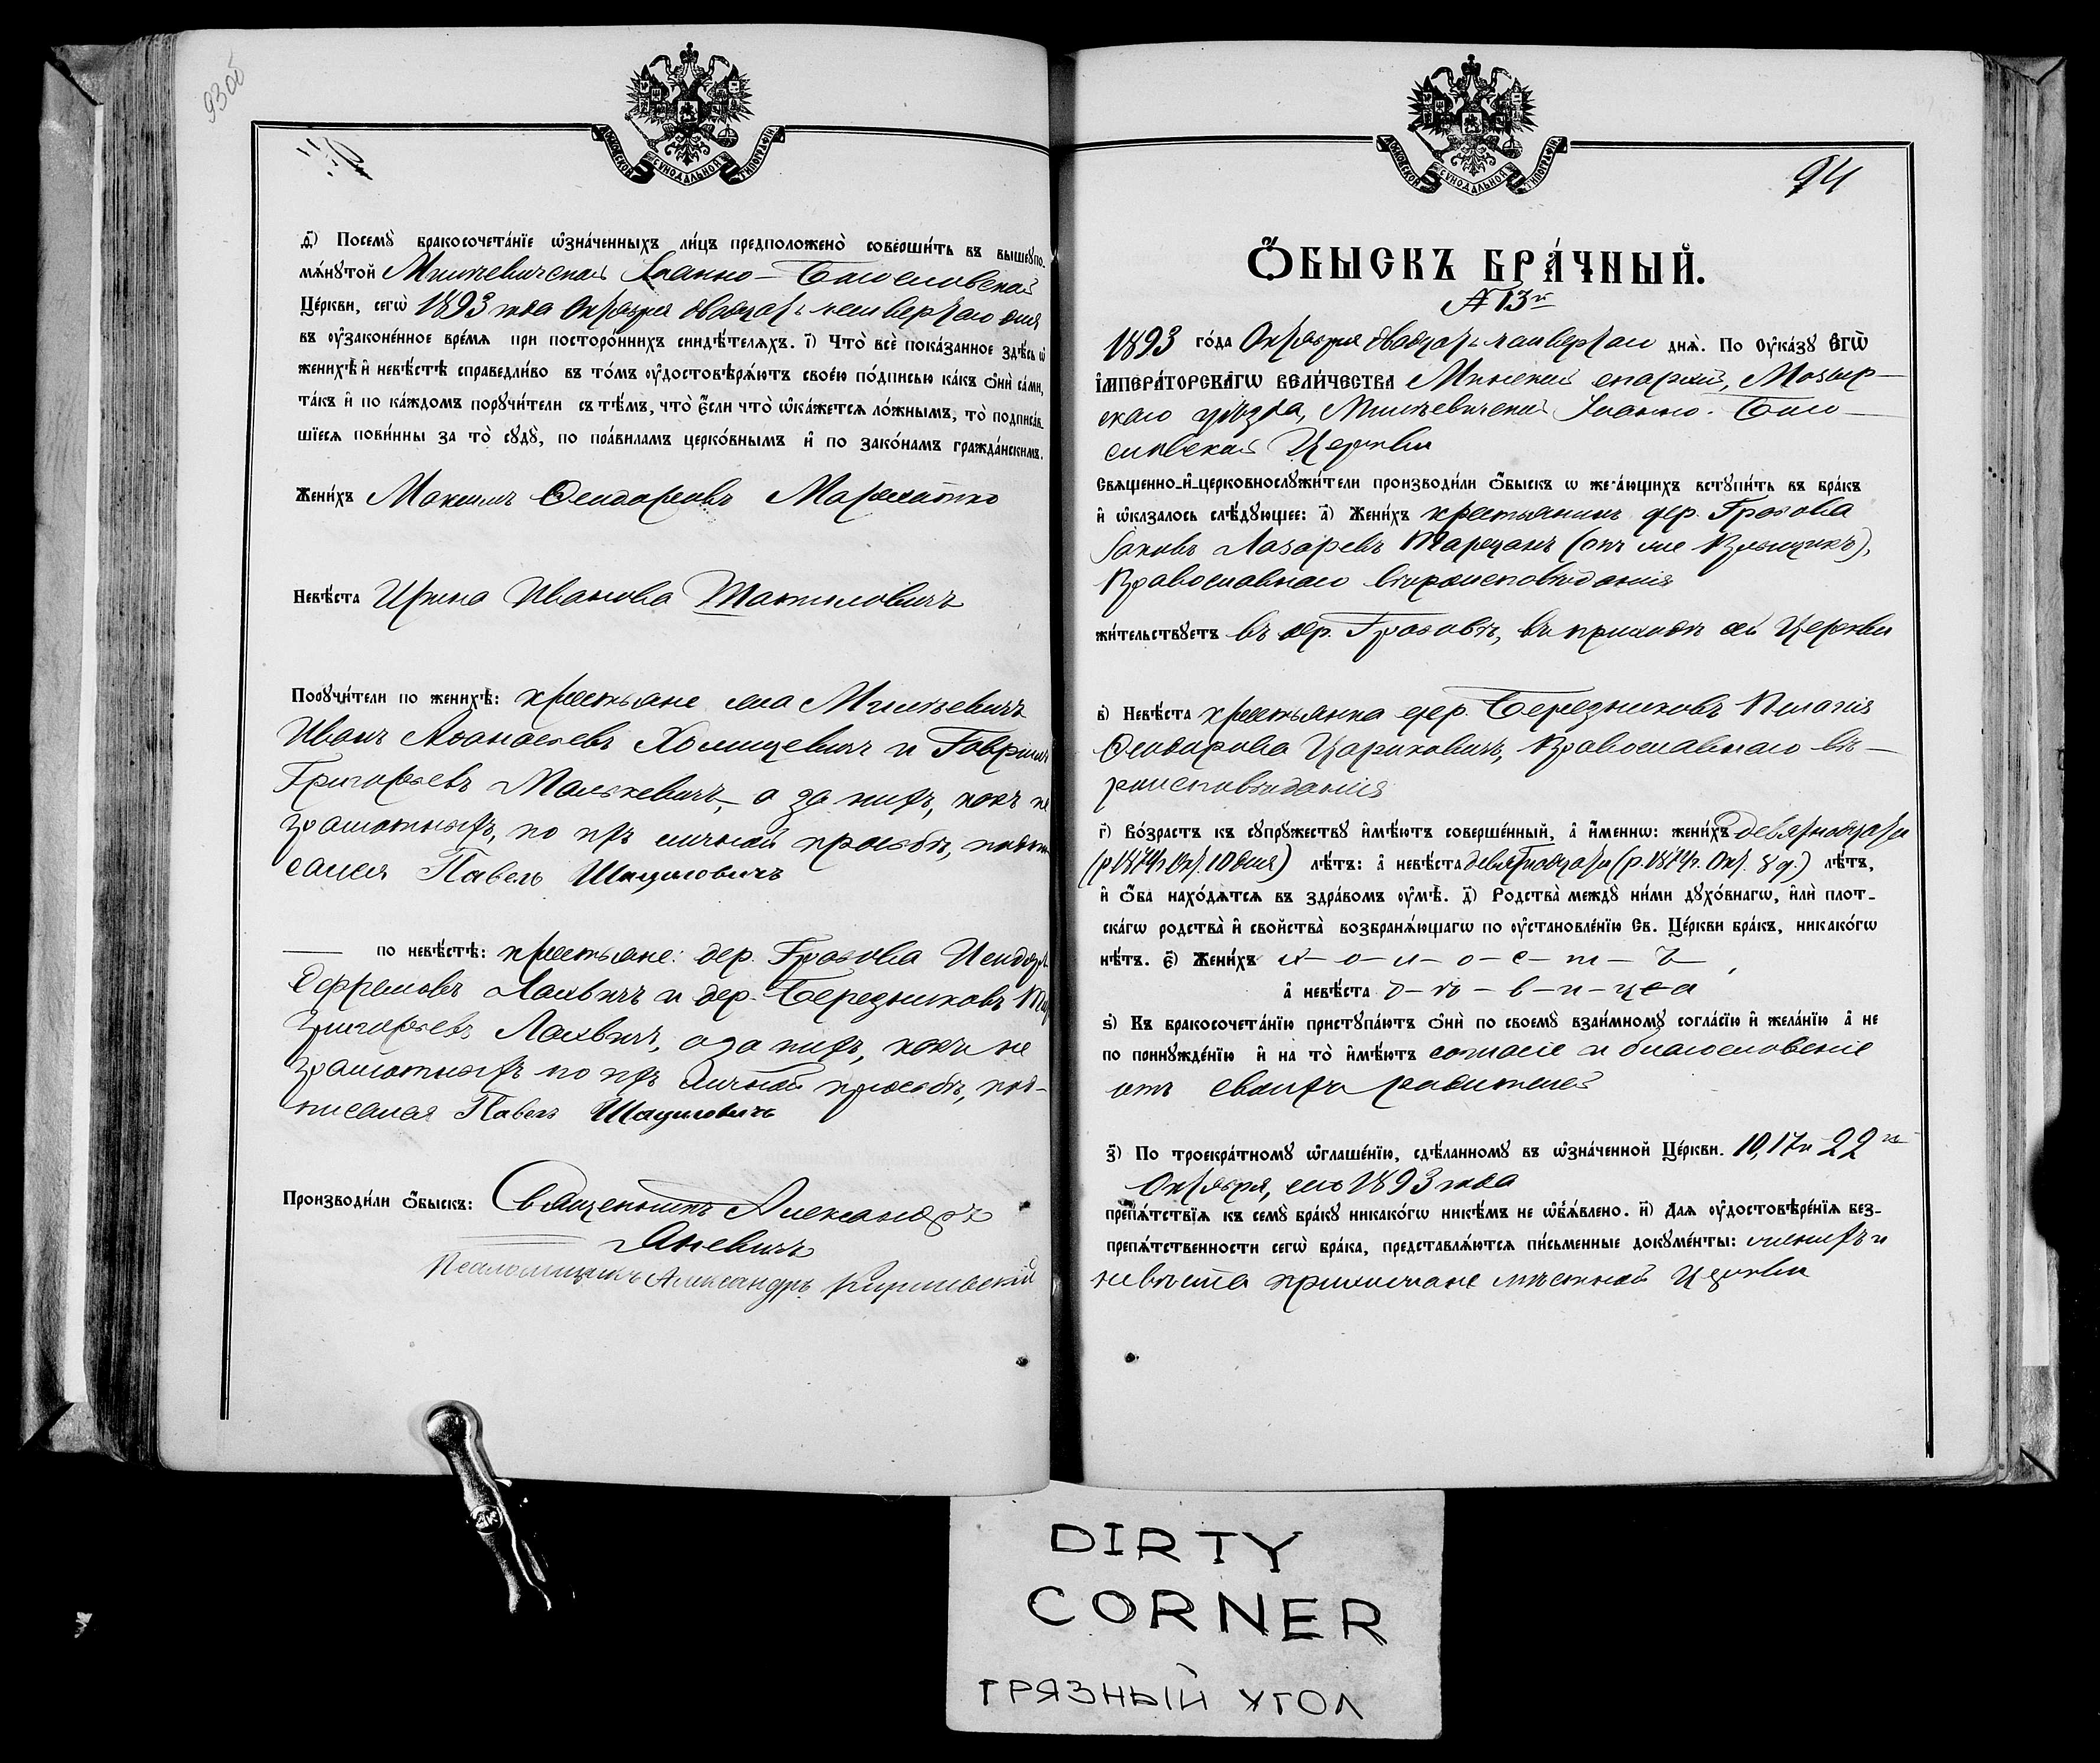 93об
МОСКОВСКОЙ СУНОДАЛЬНОЙ ТИПОГРАФІИ
д҃) Посемꙋ̀ бракосочета́нїе ѡ҆зна́ченныхъ ли́цъ предположено̀ совершѝть въ вышеꙋпо-
мѧ́нꙋтой Іоанно-Богословской
Це́ркви, сегѡ̀ 1893 года Октября двадцать четвертаго дня
въ ᲂу҆законе́нное вре́мѧ при посторо́ннихъ свидѣ́телѧхъ. і҃) Что̀ всѐ пока́занное здѣ́сь ѡ҆
женихѣ̀ и҆ невѣ́стѣ справедли́во въ то́мъ ᲂу҆достовѣрѧ́ютъ свое́ю по́дписью ка́къ ѻ҆нѝ са́ми,
та́къ и҆ по ка́ждомъ порꙋчи́тели съ тѣ́мъ, что̀ є҆́сли что̀ ѡ҆ка́жетсѧ ло́жнымъ, то̀ подписа́в-
шїесѧ пови́нны за то̀ сꙋдꙋ̀, по пра́вилам церко́внымъ и҆ по зако́намъ гражда́нскимъ.
Жени́хъ Максимъ Ѳеодоровъ
Невѣ́ста Ирина Иванова
Порꙋчи́тели по женихѣ̀: крестьяне
Иванъ Аѳанасьевъ и Гавріилъ
Григорьевъ а за нихъ, какъ не
грамотныхъ, по ихъ личной просьбѣ, подпи
сался Павелъ Шацилович
по невѣ́стѣ: крестьяне: дер. Грабова
Ефремовъ Лахвичъ и дер. Березняковъ
Григорьевъ Лахвичъ, а за нихъ, какъ не
грамотныхъ по ихъ личной просьбѣ, под-
писался Павелъ Шацилович
Производи́ли ѻ҆́быскъ: Священникъ Александръ
Яневичъ
Псаломщикъ Александръ
МОСКОВСКОЙ СУНОДАЛЬНОЙ ТИПОГРАФІИ
94
Ѻ҆́БЫСКЪ БРА́ЧНЫЙ.
№ 13й
1893 го́да Октября двадцать четвертаго днѧ̀. По ᲂу҆ка́зꙋ Є҆ГѠ̀
І҆МПЕРА́ТОРСКАГѠ ВЕЛИ́ЧЕСТВА Минской епархіи, Мозыр-
скаго уѣзда, Іоанно-Бого-
словской Церкви
Свѧщенно-и҆-церковнослꙋжи́тели производи́ли ѻ҆́быскъ ѡ жела́ющихъ встꙋпи́ть въ бра́къ
и҆ ѡ҆казалось слѣ́дꙋющее: а҃) Жени́хъ крестьянинъ дер. Грабова
Іаковъ Лазаревъ
Православнаго вѣроисповѣданія
жи́тельствꙋетъ въ дер. Грабовѣ, въ приходѣ сей Церкви
в҃) Невѣ́ста крестьянка дер. Березняковъ Пелагія
Ѳеодорова Православнаго вѣ-
роисповѣданія
г҃) Во́зрастъ къ сꙋпрꙋ́жествꙋ и҆мѣ́ютъ соверше́нный, а҆ и҆́меннѡ: жени́хъ девятнадцати
(р. 1874г. Окт. 10 дня) лѣ́тъ: а҆ невѣ́ста девятнадцати (р. 1874г. Окт. 8 д.) лѣ́тъ,
и҆ ѻ҆́ба нахо́дѧтсѧ въ здра́вомъ ᲂу҆мѣ̀. д҃) Родства̀ междꙋ̀ ни́ми дꙋхо́внагѡ, и҆лѝ плот-
ска́гѡ родства̀ и҆ сво́йства возбранѧ́ющагѡ по ᲂу҆становле́нїю Св. Це́ркви бра́къ, никако́гѡ
нѣ́тъ. є҃) Жени́хъ х-о-л-о-с-т-ъ,
а҆ невѣ́ста д-ѣ-в-и-ц-а
ѕ҃) Къ бракосочета́нїю пристꙋпа́ютъ ѻ҆нѝ по своемꙋ̀ взаи́мномꙋ согла́сїю и҆ жела́нїю а҆ не
по принꙋжде́нїю и҆ на то̀ и҆мѣ́ютъ согласіе и благословеніе
отъ своихъ родителей
з҃) По троекра́тномꙋ ѡ҆глаше́нїю, сдѣ́ланномꙋ въ ѡ҆зна́ченной Це́ркви. 10, 17 и 22го
Октября, сего 1893 года
препѧ́тствїѧ къ семꙋ̀ бра́кꙋ никако́гѡ никѣ́мъ не ѡ҆б̾ѧ́влено. и҃) Длѧ ᲂу҆достовѣре́нїѧ без-
препѧ́тственности сегѡ̀ бра́ка, представлѧ́ютсѧ пи́сьменные докꙋме́нты: женихъ и
невѣста прихожане мѣстной Церкви
DIRTY
CORNER
ГРЯЗНЫЙ УГОЛ